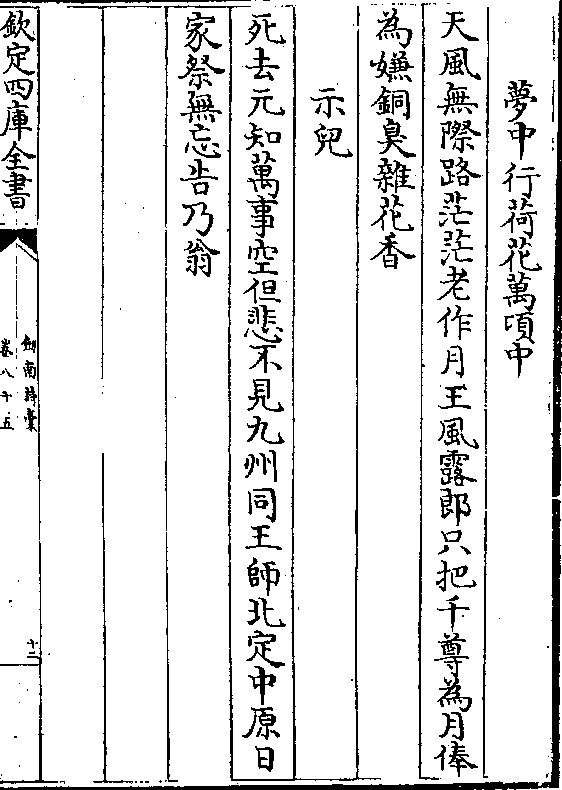 夢中行荷花萬頃中
天風無際路茫茫老作月王風露郎只把千尊為月俸
為嫌銅臭雜花香
示兒
死去元知萬事空但悲不見九州同王師北定中原日
家祭無忘告乃翁
欽定四庫全書
劒南詩稾
卷八十五
十二